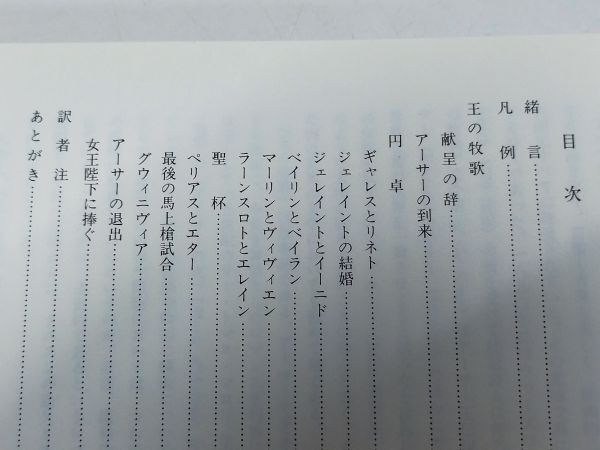 目次
緒言
凡例
王の牧歌
献呈の辞
アーサーの到来
円卓
ギャレスとリネト
ジェレイントの結婚
ジェレイントとイーニド
ベイリンとベイラン
マーリンとヴィヴィエン
ラーンスロトとエレイン
聖杯
ペリアスとエター
最後の馬上槍試合
グウィニヴィア
アーサーの退出
女王陛下に捧ぐ
訳者注
あとがき